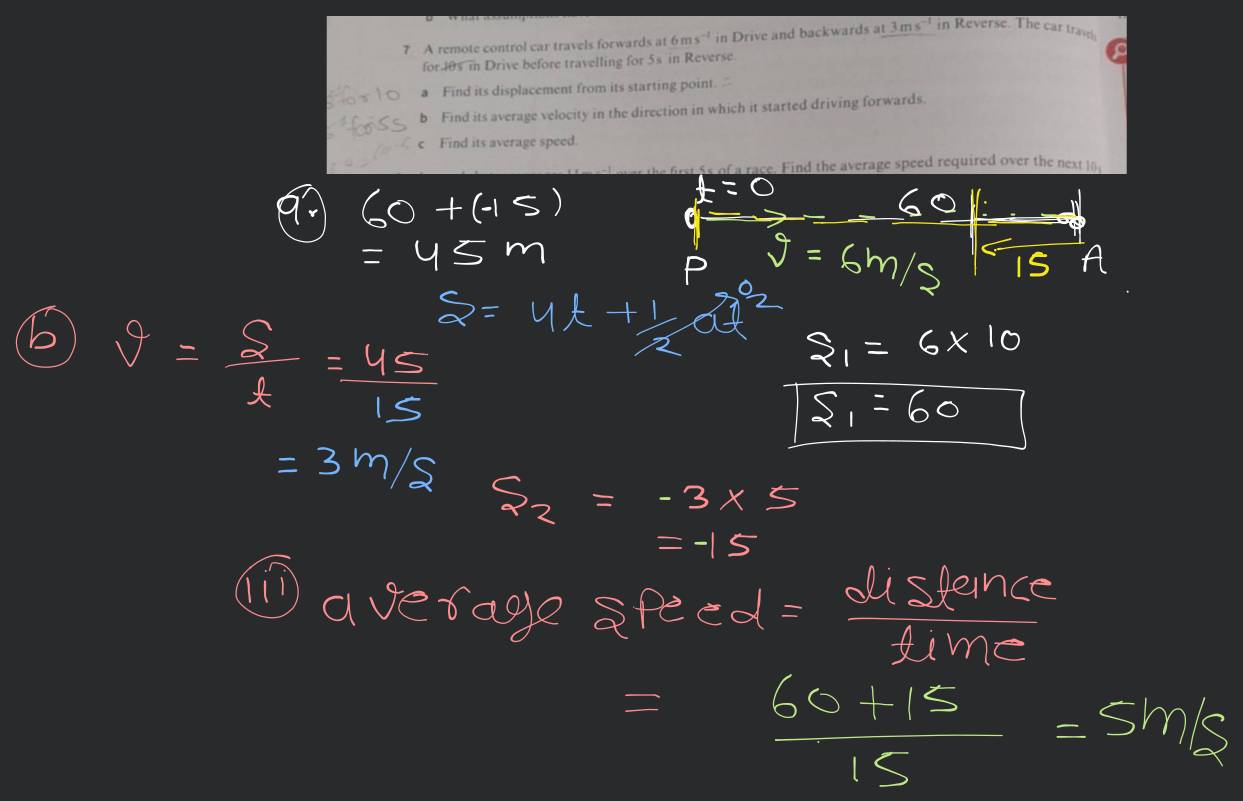 7 A remote control car travels forwards at 6 m s⁻¹ in Drive and backwards at 3 m s⁻¹ in Reverse. The car travels
for 10 s in Drive before travelling for 5 s in Reverse.
a Find its displacement from its starting point.
b Find its average velocity in the direction in which it started driving forwards.
c Find its average speed.
over the first 5 s of a race. Find the average speed required over the next 10
a. 60 + (-15)
= 45 m
t = 0
60
P
v = 6m/s
15
A
S = ut + 1/2 at²
0
S₁ = 6 × 10
S₁ = 60
b v = S/t = 45/15
= 3 m/s
S₂ = -3 × 5
= -15
iii average speed = distance/time
= 60 + 15/15 = 5m/s